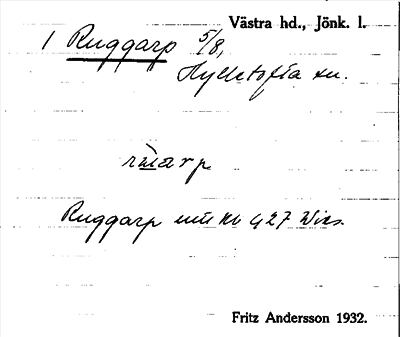 Västra hd., Jönk. l.
1 Ruggarp 5/8,
Hycklofta sn.
rua̱rp
Ruggarp 427
Fritz Andersson 1932.